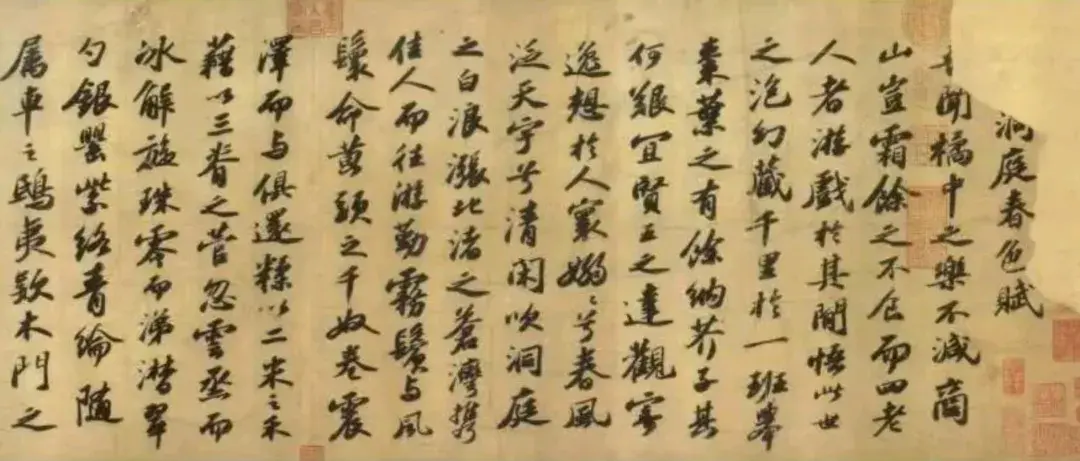 洞庭春色賦
聞橘中之樂不減商
山豈霜餘之不食而四老
人者游戲於其間悟此世
之泡幻藏千里於一班舉
棗葉之有餘納芥子其
何艱宜賢王之達觀寄
逸想於人寰嫋〻兮春風
泛天宇兮清閑吹洞庭
之白浪漲北渚之蒼灣攜
佳人而往游勤霧鬢与風
鬟命黃頭之千奴卷震
澤而与俱還糅以二米之禾
藉以三脊之菅忽雲烝而
冰解旋珠零而涕潸翠
勺銀罌紫絡青綸隨
属車之鴟夷款木門之